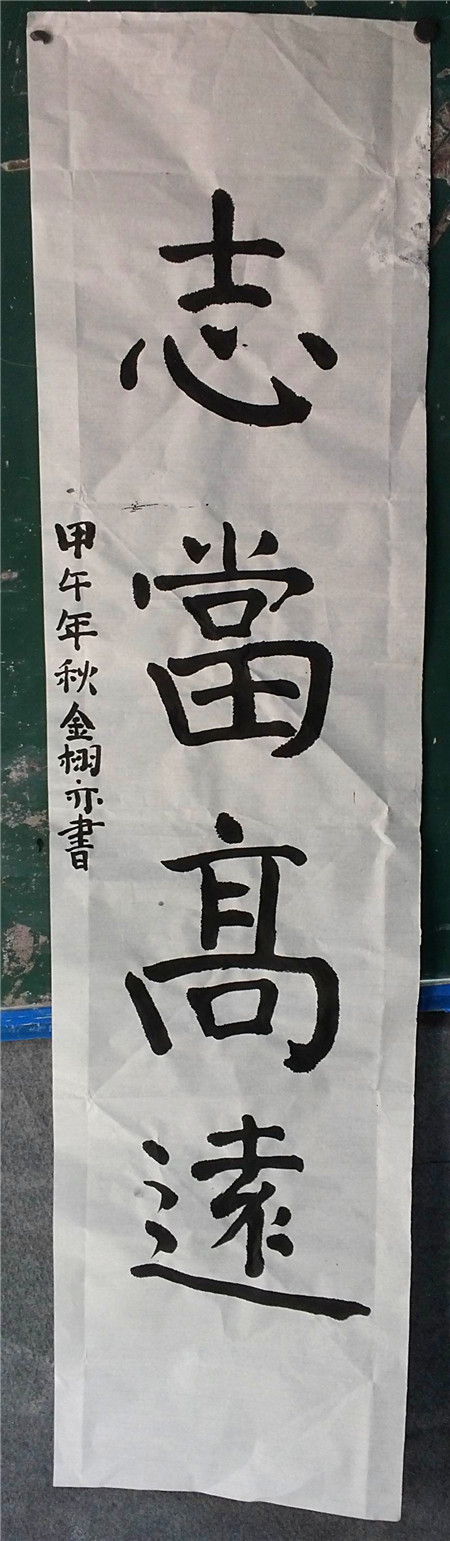 志當高遠
甲午年秋金栩亦書